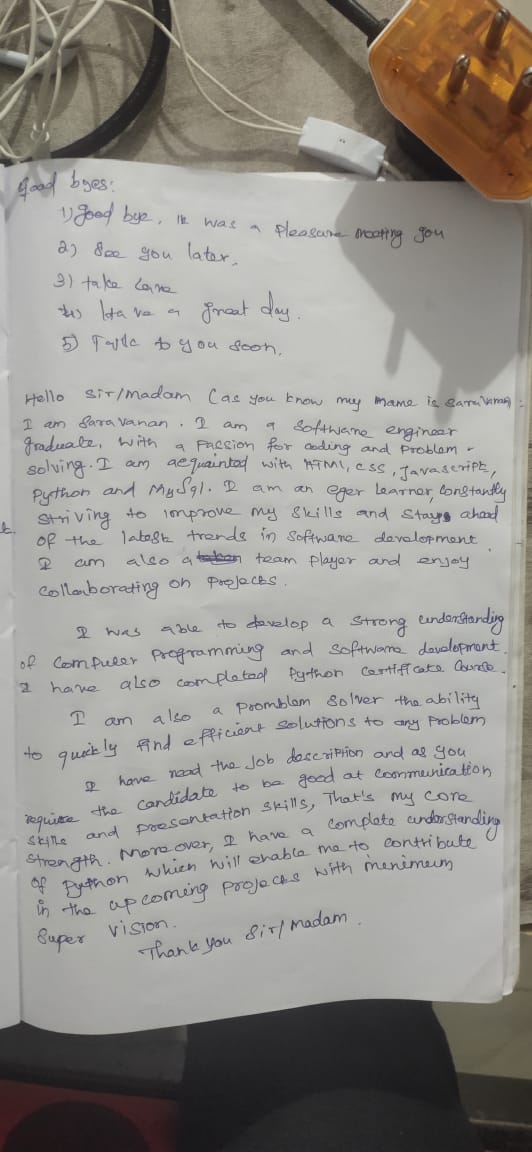 good byes:
1) good bye, it was a pleasure meeting you
2) See you later.
3) take care
4) Have a great day.
5) Talk to you soon.
Hello Sir/madam (as you know my mame is Saravanan)
I am Saravanan. I am a Software engineer
graduate, with a Passion for coding and Problem-
solving. I am acquainted with HTMl, CSS, Javascript,
Python and MySql. I am an eger learner, Constantly
striving to improve my skills and Stays ahead
of the latest trends in Software development
I am also a team player and enjoy
collaborating on Projects.
I was able to develop a strong understanding
of Computer Programming and Software development.
I have also completed Python Certificate Course.
I am also a Poomblam Solver the ability
to quickly find efficient solutions to any Problem
I have read the Job description and as you
require the candidate to be good at Communication
skills and Presantation skills, That's my core
strength. Moreover, I have a complete understanding
of Python which will enable me to contribute
in the upcoming Projects with menimum
Super vision.
Thank you Sir/Madam.